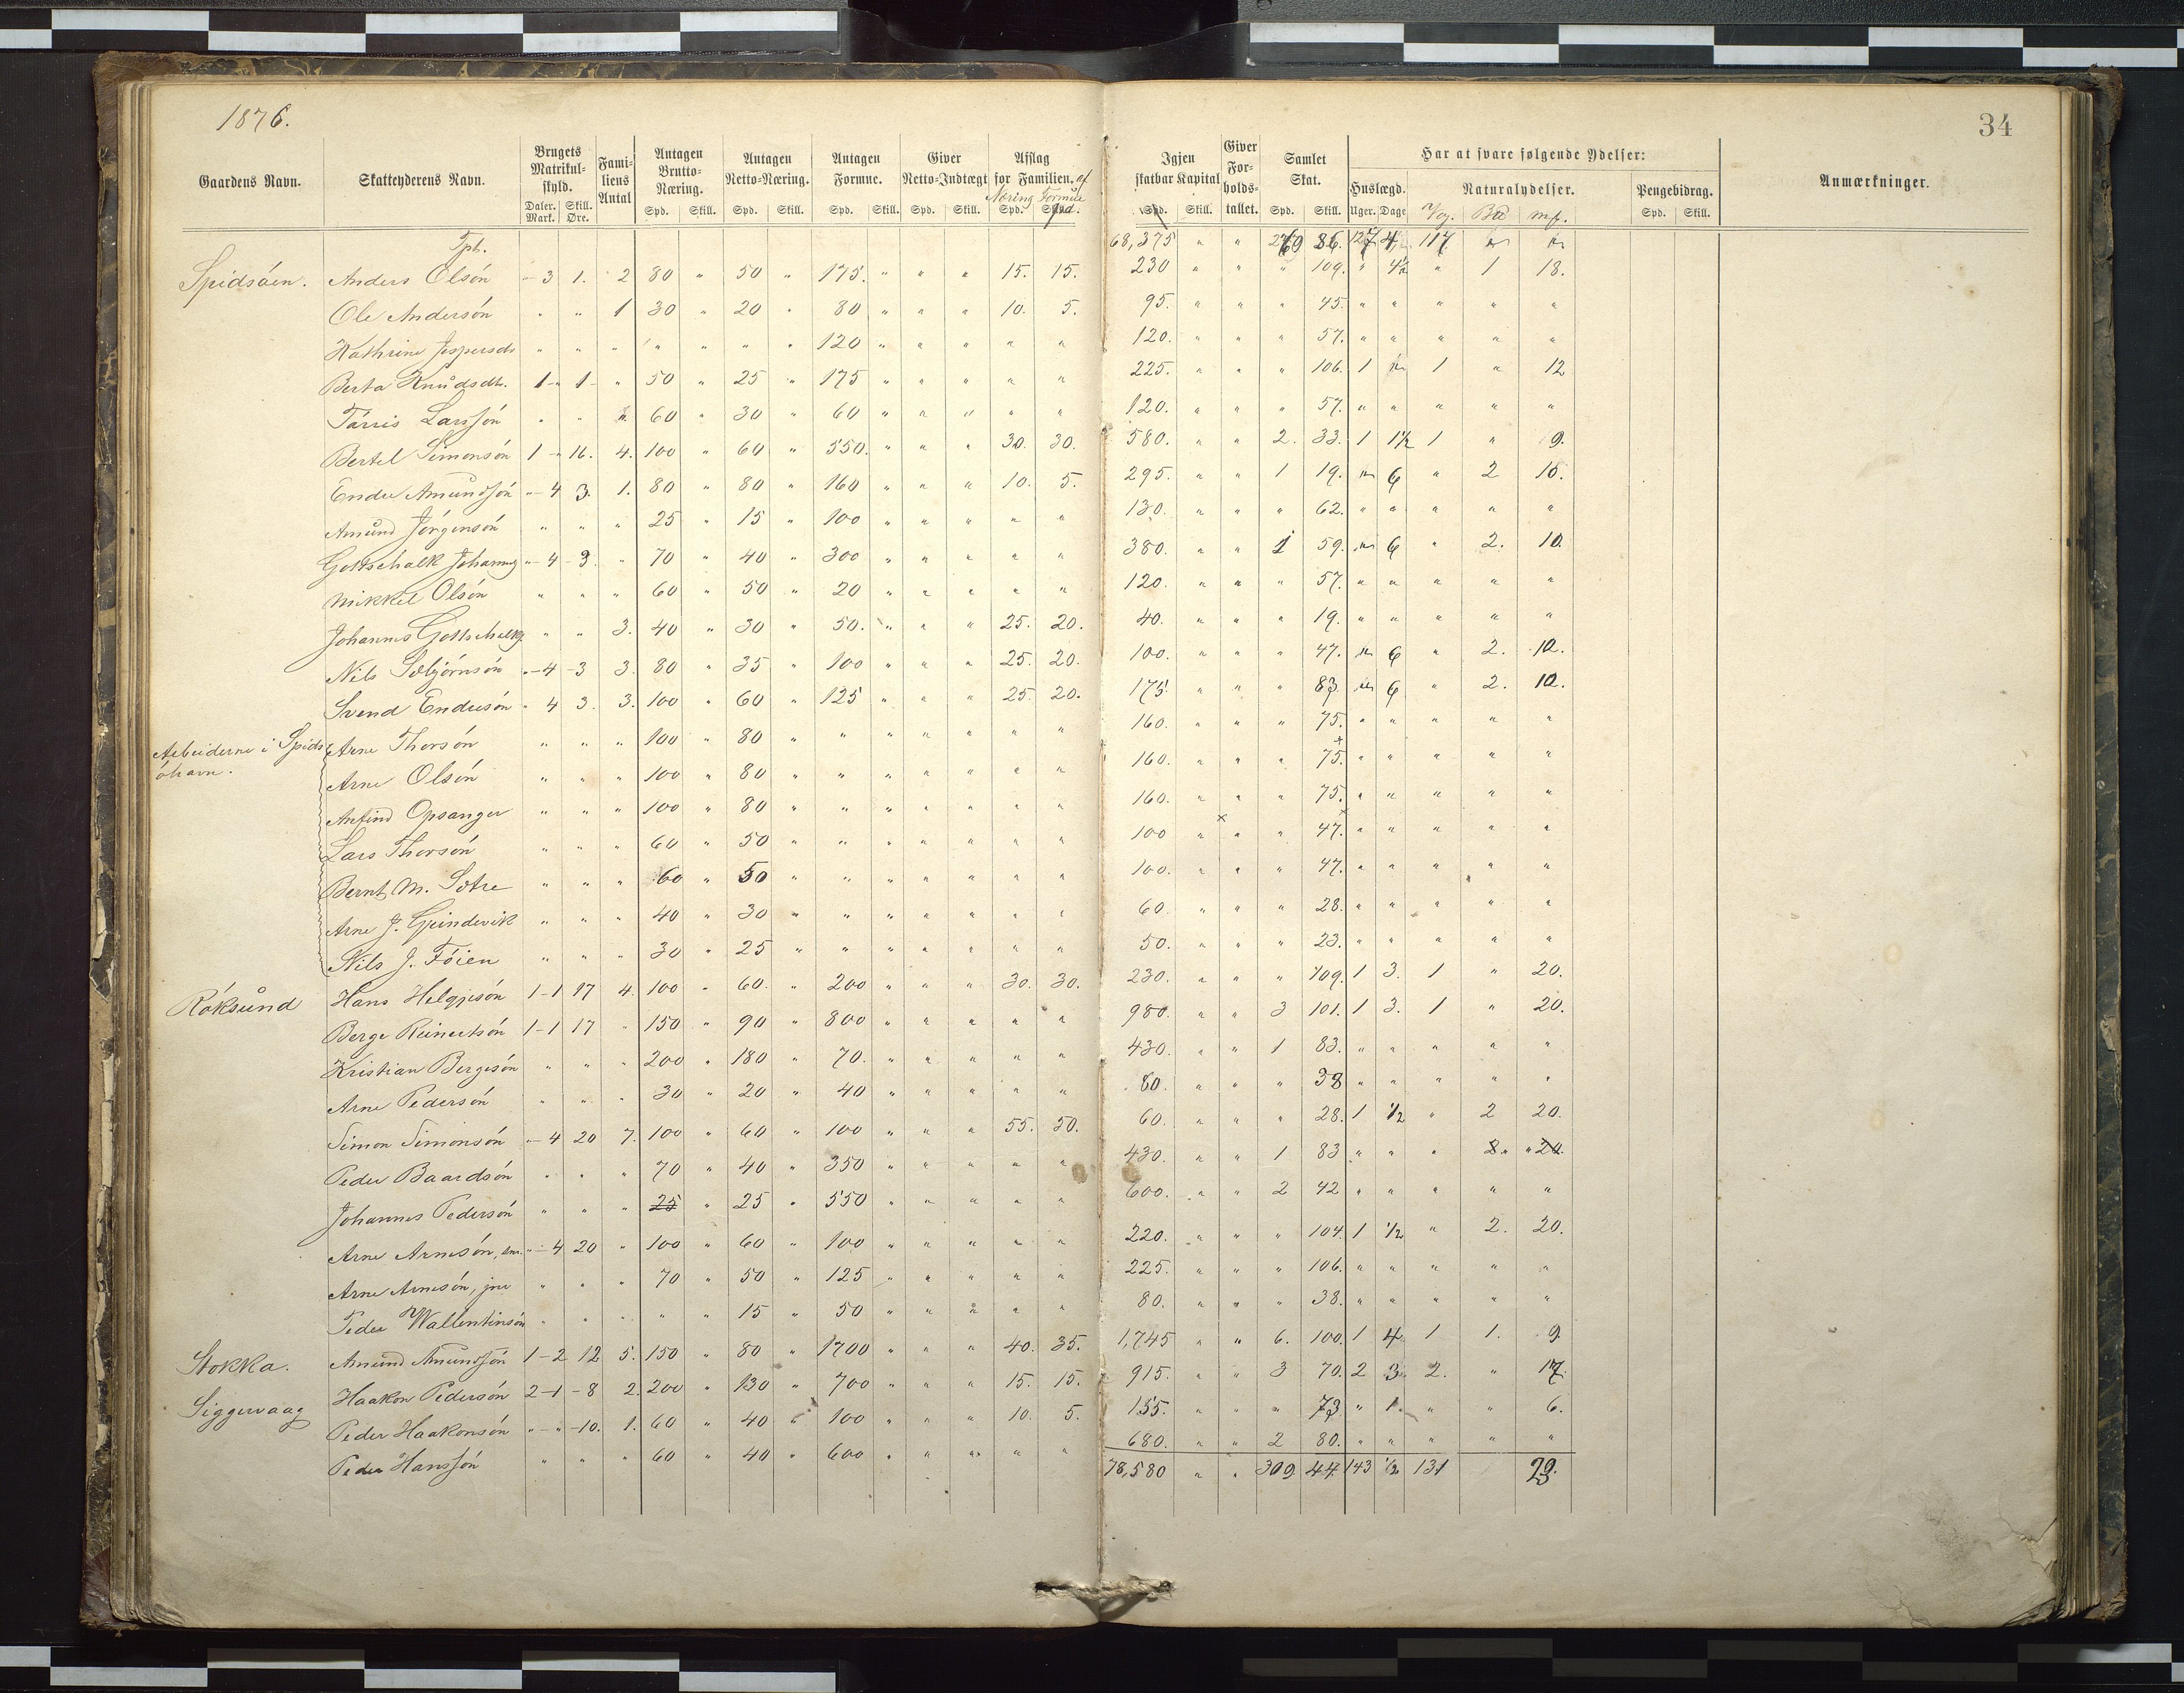 1876.
34
Gaardens Navn. Skatteyderens Navn. Brugets Matrikul-skyld. Daler. Mark. Skill. Øre. Fami-liens Antal Antagen Brutto-Næring. Spd. Skill. Antagen Netto-Næring. Spd. Skill. Antagen Formue. Spd. Skill. Giver Netto-Indtægt Spd. Skill. Afslag for Familien. af Næring Formue Spd. Igjen skatbar Kapital Spd. Skill. Giver For-holds-tallet. Samlet Skat. Spd. Skill. Har at svare følgende Ydelser: Huslægd. Uger. Dage Naturalydelser. Pengebidrag. Spd. Skill. Anmærkninger.
Tpt. 68,375 " " 269 86. 127 4 117
Spidsöen. Anders Olsön " 3 1. 2 80 " 50 " 175. " " " 15. 15. 230 " " " 109. " 4½ " 1 18.
Ole Andersön " " 1 30 " 20 " 80 " " " 10. 5. 95. " " " 45. " " " " "
Kathrine Jespersdr " " " " " " " 120 " " " " " 120. " " " 57. " " " " "
Berta Knudsdtr. 1 " 1 " 50 " 25 " 175 " " " " " 225. " " " 106. 1 " 1 " 12
Tärris Larssön " " " 60 " 30 " 60 " " " " " 120. " " " 57. " " " " "
Bertel Simonsön 1 " 16. 4. 100 " 60 " 550. " " " 30. 30. 580. " " 2. 33. 1 1½ 1 " 9.
Endre Amundsön " 4 3. 1. 80 " 80 " 160 " " " 10. 5. 295. " " 1 19. " 6 " 2 10.
Amund Jörgensön " " " 25 " 15 " 100 " " " " " 130. " " " 62. " " " " "
Gottschalk Johannes " 4 3. " 70 " 40 " 300 " " " " " 380. " " 1 59. " 6 " 2. 10.
Mikkel Olsön " " " 60 " 50 " 20 " " " " " 120. " " " 57. " " " " "
Johannes Gottschalk " " 3. 40 " 30 " 50. " " " 25. 20. 40. " " " 19. " " " " "
Nils Sæbjörnsön " 4 3 3. 80 " 35 " 100 " " " 25. 20. 100. " " " 47. " 6 " 2. 10.
Svend Endresön " 4 3. 3. 100 " 60 " 125 " " " 25. 20. 175 " " " 83. " 6 " 2. 10.
Arbeiderne i Spids- Arne Thorsön " " " 100 " 80 " " " " " " " 160. " " " 75. " " " " "
öhavn. Arne Olsön " " " 100 " 80 " " " " " " " 160. " " " 75. " " " " "
Anfind Opsanger " " " 100 " 80 " " " " " " " 160. " " " 75. " " " " "
Lars Thorsön " " " 60 " 50 " " " " " " " 100 " " " 47. " " " " "
Bernt M. Sotre " " " 60 " 50 " " " " " " " 100. " " " 47. " " " " "
Arne J. Grindevik " " " 40 " 30 " " " " " " " 60. " " " 28. " " " " "
Nils J. Föien " " " 30 " 25 " " " " " " " 50. " " " 23. " " " " "
Röksund Hans Helgesön 1-1 17 4. 100 " 60. " 200 " " " 30. 30. 230. " " " 109. 1 3. 1 " 20.
Berge Reinertsön 1-1 17 " 150 " 90 " 800 " " " " " 980. " " 3 101. 1 3. 1 " 20.
Kristian Bergesön " " " 200 " 180 " 70. " " " " " 430. " " 1 83. " " " " "
Arne Pedersön " " " 30 " 20 " 40 " " " " " 80. " " " 38 " " " " "
Simon Simonsön " 4 20 7. 100 " 60 " 100 " " " 55. 50. 60. " " " 28. 1 ½ " 2 20.
Peder Baardsön " " " 70 " 40 " 350 " " " " " 430. " " 1 83 " " " 2. " 20.
Johannes Pedersön " " " 25 " 25 " 550 " " " " " 600. " " 2 42 " " " " "
Arne Arnesön, snr. " 4 20 " 100 " 60 " 100 " " " " " 220. " " " 104. 1 ½ " 2. 20.
Arne Arnesön, jnr " " " 70 " 50 " 125 " " " " " 225. " " " 106. " " " " "
Peder Wallentinsön " " " " " 15 " 50 " " " " " 80. " " " 38. " " " " "
Stokka. Amund Amundsön 1-2 12 5. 150 " 80 " 1700 " " " 40. 35. 1,745 " " 6. 100. 1 4 1 1. 9
Siggervaag Haakon Pedersön 2-1 8 2. 200 " 130 " 700 " " " 15. 15. 915. " " 3 70. 2 3 2. " 17.
Peder Haakonsön " " 10. 1. 60 " 40 " 100 " " " 10. 5. 155. " " " 73 " 1. " " 6.
Peder Hanssön " " " 60 " 40 " 600 " " " " " 680. " " 2 80. " " " " "
78,580 " " 309 44 143 ½ 131